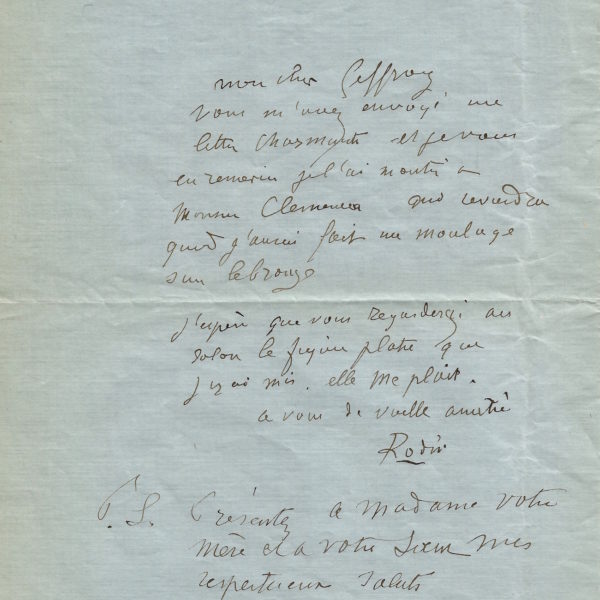 mon cher Geffroy
vous m'avez envoyé une
lettre charmante et je vous
en remercie je l'ai montré a
Monsieur Clemenceau qui reviendra
quand j'aurai fait un moulage
sur le bronze
j'espère que vous regarderez au
salon la figure platre que
j'y ai mis. elle me plait.
a vous de vieille amitié
Rodin
P.S. Présentez a madame votre
mère et a votre Sœur mes
respectueux saluts